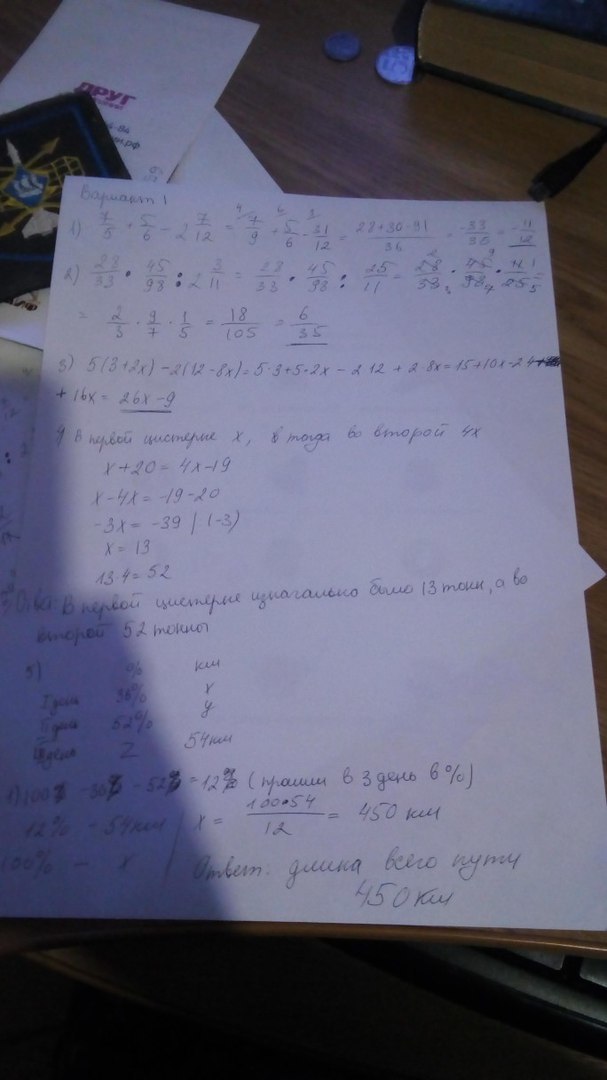 ДРУГ
Вариант 1
1) 7/5 + 5/6 - 2 7/12 = 7/9 + 5/6 - 31/12 = 28+30-91/36 = -33/36 = -11/12
2) 28/33 • 45/98 : 2 3/11 = 28/33 • 45/98 : 25/11 = 28/33 • 45/98 • 11/25
= 2/3 • 9/7 • 1/5 = 18/105 = 6/35
3) 5(3+2x) - 2(12-8x) = 5·3+5·2x - 2·12 + 2·8x = 15+10x-24
+ 16x = 26x-9
4 В первой цистерне x, тогда во второй 4x
x+20 = 4x-19
x-4x = -19-20
-3x = -39 | (-3)
x = 13
13·4 = 52
Ответ: В первой цистерне изначально было 13 тонн, а во
второй 52 тонны
5) % км
I день 36% x
II день 52% y
III день Z 54км
1) 100% - 36% - 52% = 12% (прошли в 3 день в %)
12% - 54км | x = 100•54/12 = 450 км
100% - x
Ответ: длина всего пути
450 км